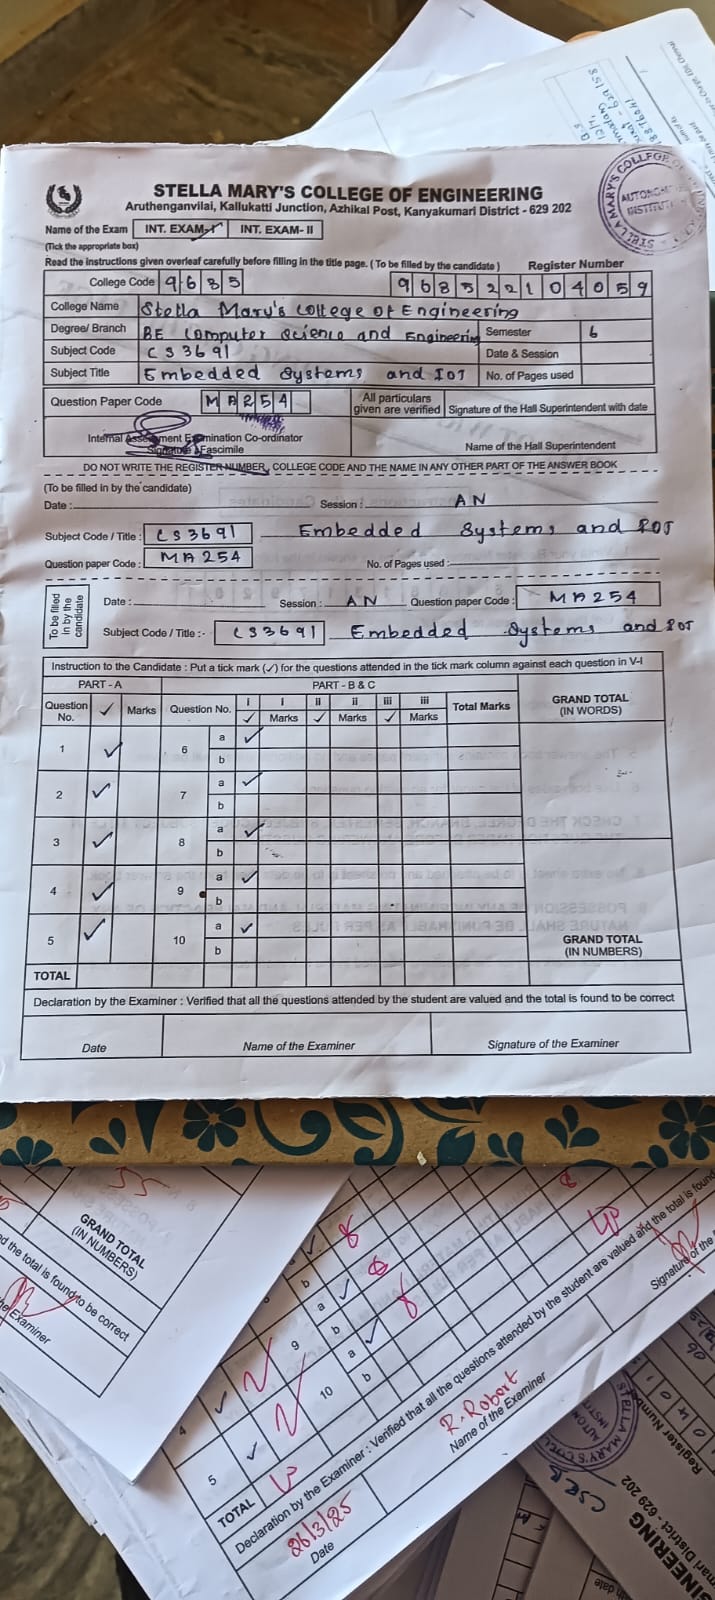 STELLA MARY'S COLLEGE OF ENGINEERING
Aruthenganvilai, Kallukatti Junction, Azhikal Post, Kanyakumari District - 629 202
Name of the Exam INT. EXAM-I INT. EXAM- II
(Tick the appropriate box)
Read the instructions given overleaf carefully before filling in the title page. ( To be filled by the candidate ) Register Number
College Code 9 6 8 5 9 6 8 5 2 2 1 0 4 0 5 9
College Name Stella Mary's College of Engineering
Degree/ Branch BE Computer Science and Engineering Semester 6
Subject Code CS3691 Date & Session
Subject Title Embedded Systems and IOT No. of Pages used
Question Paper Code M A 2 5 4 All particulars given are verified Signature of the Hall Superintendent with date
Internal Assessment Examination Co-ordinator
Signature Fascimile Name of the Hall Superintendent
DO NOT WRITE THE REGISTER NUMBER, COLLEGE CODE AND THE NAME IN ANY OTHER PART OF THE ANSWER BOOK
(To be filled in by the candidate)
Date : Session : AN
Subject Code / Title : CS3691 Embedded Systems and IOT
Question paper Code : MA254 No. of Pages used :
To be filled in by the candidate
Date : Session : AN Question paper Code : MA254
Subject Code / Title :- CS3691 Embedded Systems and IOT
Instruction to the Candidate : Put a tick mark (✓) for the questions attended in the tick mark column against each question in V-I
PART - A PART - B & C
Question No. ✓ Marks Question No. i ✓ i Marks ii ✓ ii Marks iii ✓ iii Marks Total Marks GRAND TOTAL (IN WORDS)
1 ✓ 6 a ✓
b
2 ✓ 7 a ✓
b
3 ✓ 8 a ✓
b
4 ✓ 9 a ✓
b
5 ✓ 10 a ✓ GRAND TOTAL
b (IN NUMBERS)
TOTAL
Declaration by the Examiner : Verified that all the questions attended by the student are valued and the total is found to be correct
Date Name of the Examiner Signature of the Examiner
GRAND TOTAL
(IN NUMBERS)
d the total is found to be correct
Examiner
b
9 a ✓
b
4 ✓
10 a ✓
b
5 ✓
TOTAL
Declaration by the Examiner : Verified that all the questions attended by the student are valued and the total is found
26/3/25 R. Robert
Date Name of the Examiner Signature of the
Register Number
STELLA MARY'S
CSER
629 202